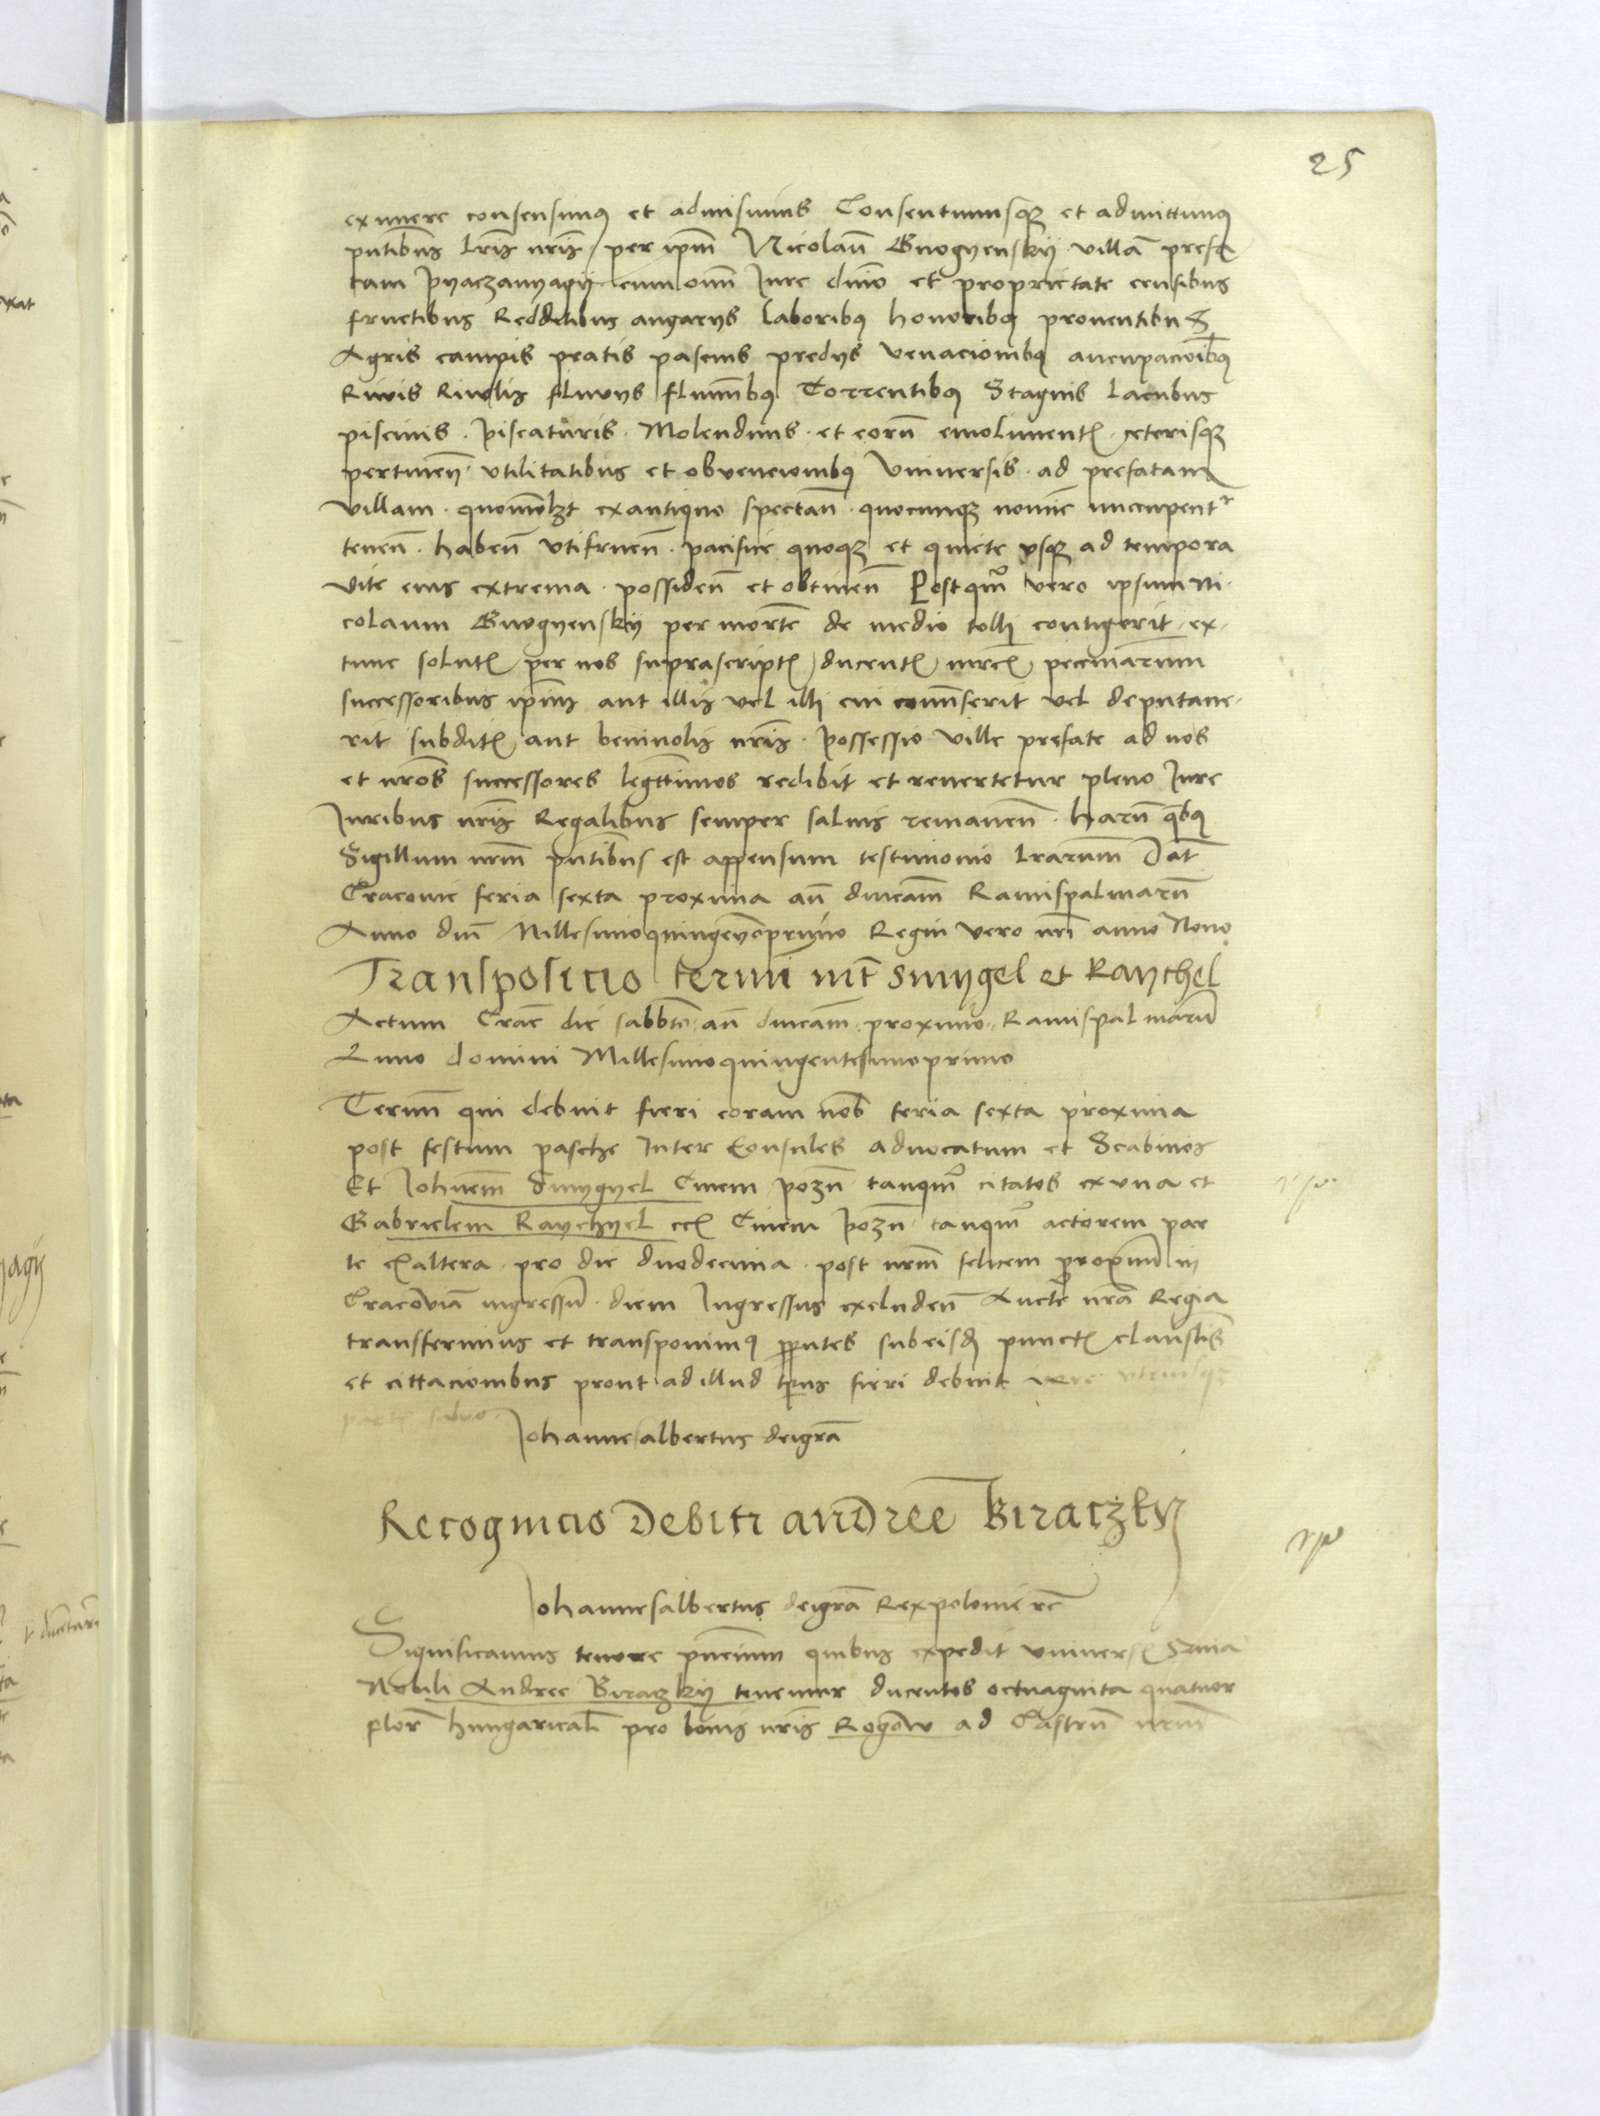 25
eximere consensimus et admisimus Consentimusqz et admittimus
pntibus lris nris per ipm Nicolaum Gnogyenskij villa prefa
tam Pyaczanyagij cum omi Iure dnio et proprietate censibus
fructibus Redditibus angarijs laboribus honoribus proventibus
Agris campis pratis pascuis predijs venacionibus aucupacionibus
Rivis Rivulis fluvijs fluminibus Torrentibus Stagnis lacubus
piscinis . piscaturis . Molendinis . et eorum emolimentis . ceterisqz
pertinen . utilitatibus et obvencionibus Universis . ad prefatam
villam . quomolzt exantiquo spectan . quocunqz nomine nuncupentr
tenen . haben utifruen . pacifice quoqz et quiete usqz ad tempora
vite eius extrema . possiden et obtinen Postqm vero ipsum Ni-
colaum Gnogyenskij per morte de medio tolli contigerit . ex-
tunc solutis per nos suprascriptis ducentis mrcis pecuniarum
successoribus ipius aut illis vel illi cui commiserit vel deputave-
rit subditis aut benivolis nris . possessio ville prefate ad nos
et nros successores legittimos redibit et revertetur pleno Iure
Iuribus nris Regalibus semper salvis remanen . harum qbus
Sigillum nrm pntibus est appensum testimonio lrarum Dat
Cracovie feria sexta proxima an dnicam Ramispalmarum
Anno dni Millesimoquingenprimo Regni vero nri anno Nono
Transposicio termi int Smygel et Raychel
Actum Crac die sabbto an dnicam proximo Ramispalmarum
Anno domini Millesimoquingentesimoprimo
Termin qui debuit fieri coram nob feria sexta proxima
post festum pasche Inter Consules advocatum et Scabinos
Et Iohnem Smygyel Civem pozn tanqm citatos ex una et
Gabrielem Raychyel ecl Civem pozn tanqm actorem par
te exaltera . pro die duodecima . post nrm felicem proximu in
Cracovia ingressu . diem Ingressus excluden Aucte nra Regia
transferimus et transponimus pputes subeisdem punctis claustis
et cittacionibus prout ad illud tpus fieri debuit iure utriusqz
partis salvo
Iohannesalbertus deigra
Recognicio Debiti andree Biraczky
Iohannesalbertus deigra Rexpolonie rc
Significamus tenore pncium quibus expedit universis Quia
Nobili Andree Biraczkij tenemur ducentos octuaginta quatuor
flor hungarical pro bonis nris Rogow ad Castrum nrum